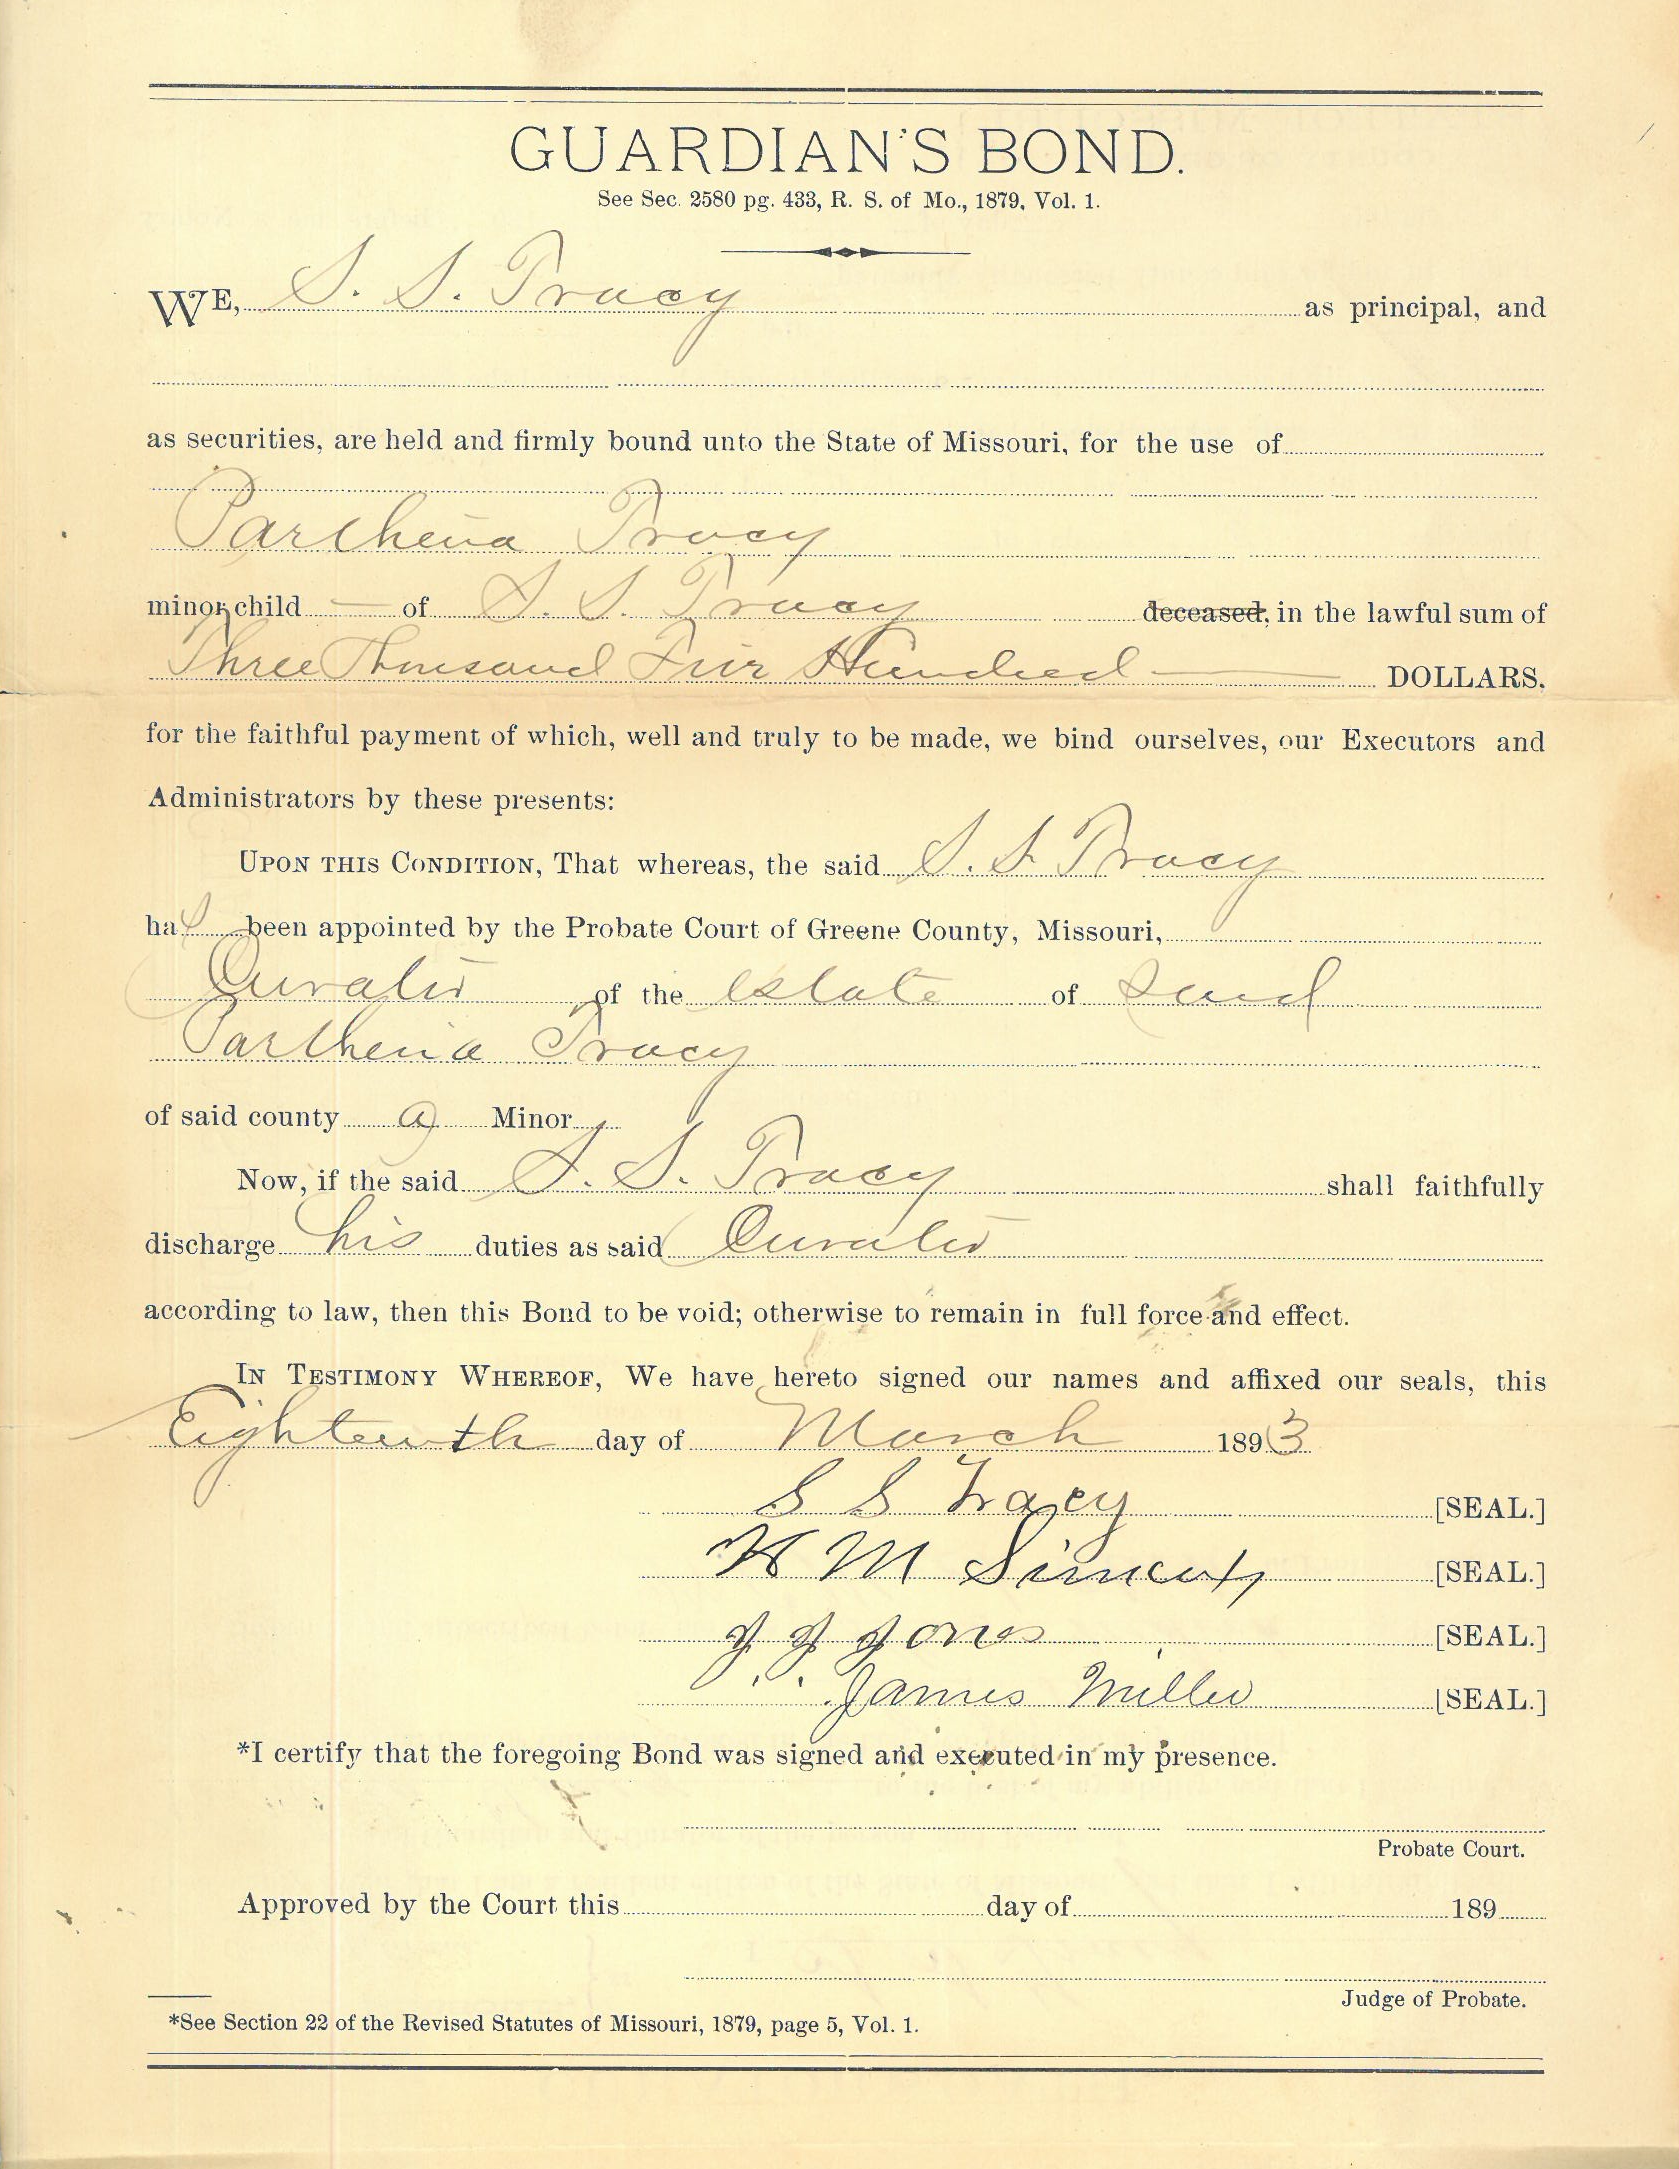 GUARDIAN'S BOND.
See Sec. 2580 pg. 433, R. S. of Mo., 1879, Vol. 1.
WE, S. S. Tracy as principal, and
as securities, are held and firmly bound unto the State of Missouri, for the use of
Parthena Tracy
minor child — of S. S. Tracy deceased, in the lawful sum of
Three Thousand Hundred — DOLLARS.
for the faithful payment of which, well and truly to be made, we bind ourselves, our Executors and
Administrators by these presents:
UPON THIS CONDITION, That whereas, the said S. S. Tracy
has been appointed by the Probate Court of Greene County, Missouri,
Curator of the estate of said
Parthena Tracy
of said county a Minor
Now, if the said S. S. Tracy shall faithfully
discharge his duties as said Curator
according to law, then this Bond to be void; otherwise to remain in full force and effect.
IN TESTIMONY WHEREOF, We have hereto signed our names and affixed our seals, this
Eighteenth day of March 1893
S S Tracy [SEAL.]
M [SEAL.]
J. J. Jones [SEAL.]
James Miller [SEAL.]
*I certify that the foregoing Bond was signed and executed in my presence.
Probate Court.
Approved by the Court this day of 189
Judge of Probate.
*See Section 22 of the Revised Statutes of Missouri, 1879, page 5, Vol. 1.